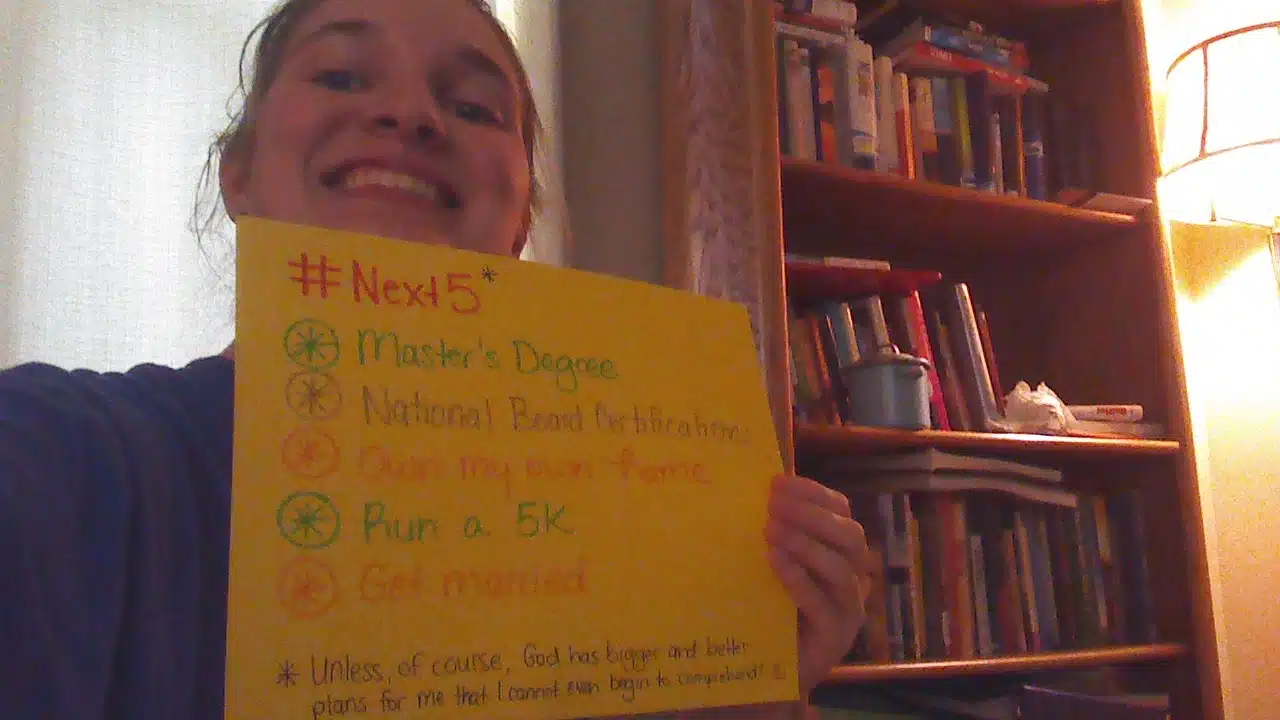 #Next5*
Master's Degree
National Board Certification
Own my own home
Run a 5K
Get married
* Unless, of course, God has bigger and better
plans for me that I cannot even begin to comprehend!